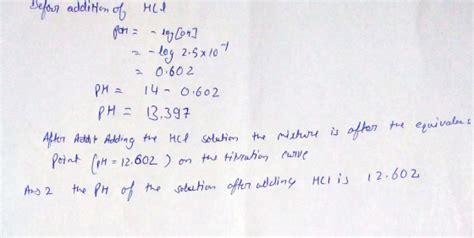 Before addition of HCl
pOH = - log [OH]
= - log 2.5 x 10⁻¹
= 0.602
PH = 14 - 0.602
PH = 13.397
After Adding the HCl solution the mixture is after the equivalens
Point (pH = 12.602) on the titration curve
Ans 2 the PH of the solution after adding HCl is 12.602